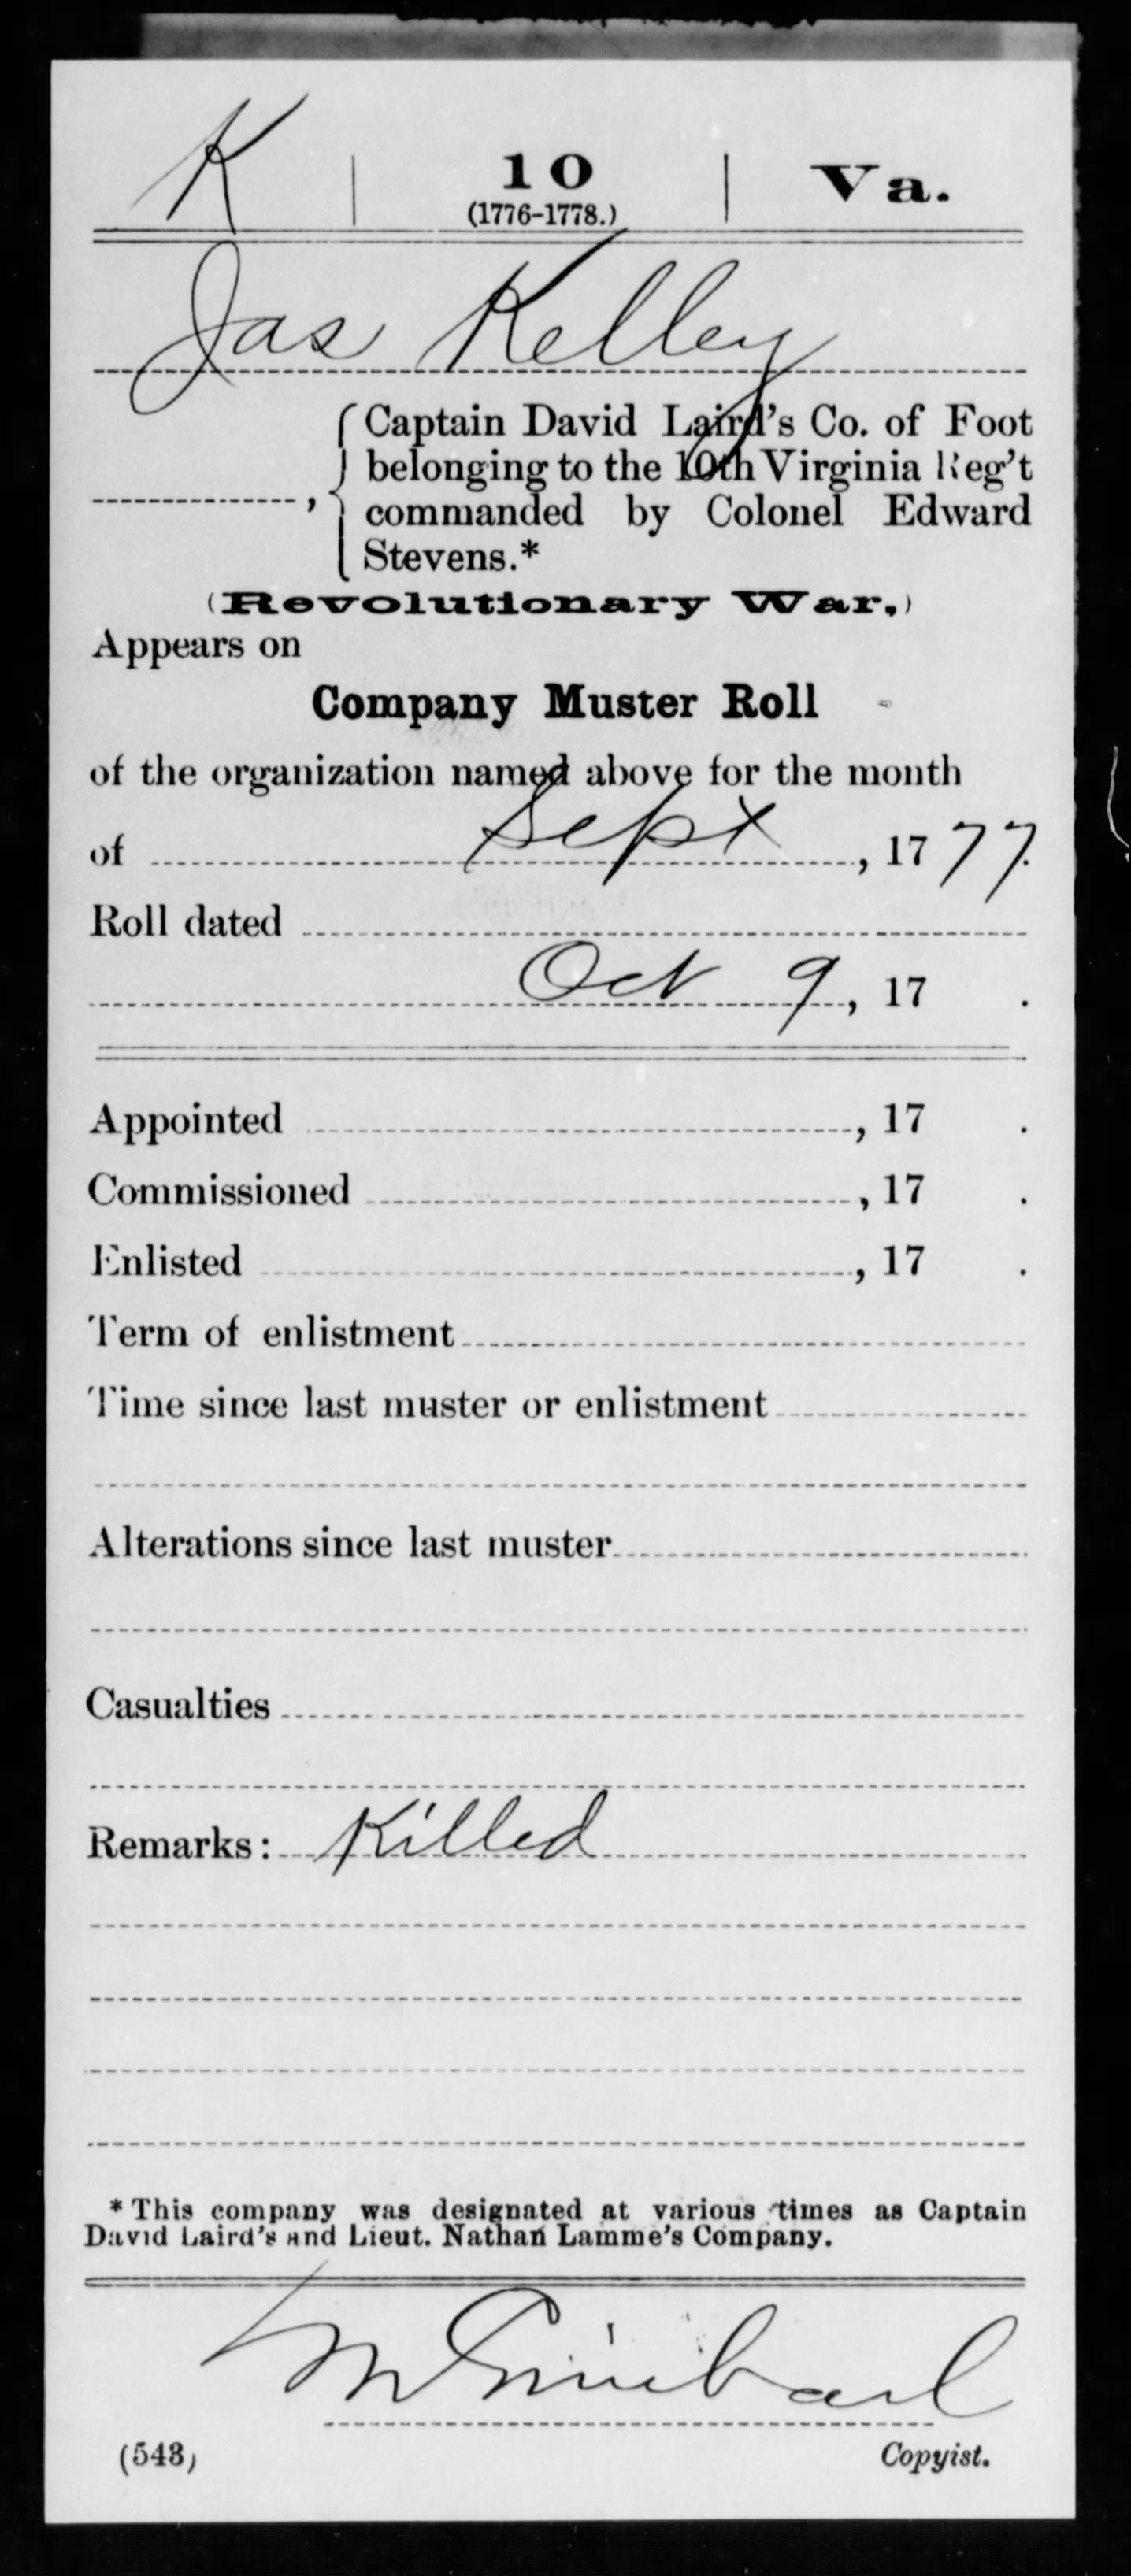 K | 10 | Va.
(1776-1778.)
Jas Kelley
Captain David Laird's Co. of Foot
belonging to the 10th Virginia Reg't
commanded by Colonel Edward
Stevens.*
(Revolutionary War.)
Appears on
Company Muster Roll
of the organization named above for the month
of Sept, 1777.
Roll dated
Oct 9, 17 .
Appointed , 17 .
Commissioned , 17 .
Enlisted , 17 .
Term of enlistment
Time since last muster or enlistment
Alterations since last muster
Casualties
Remarks: Killed
* This company was designated at various times as Captain
David Laird's and Lieut. Nathan Lamme's Company.
(543)
Copyist.